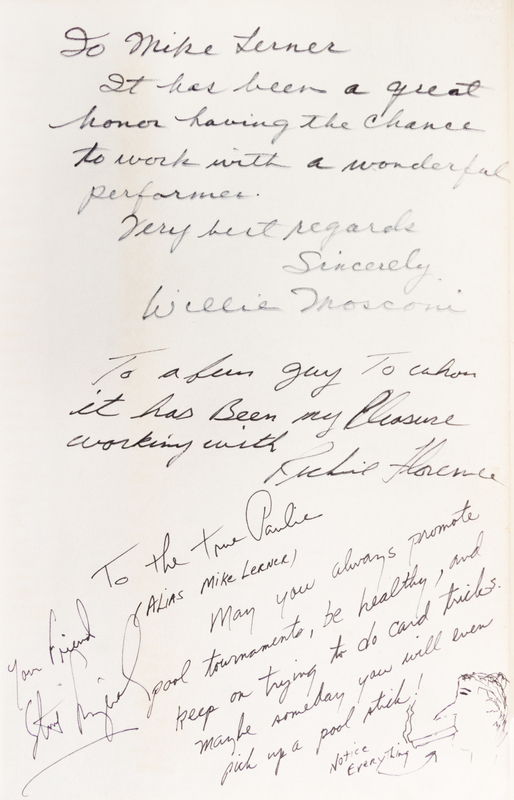 To Mike Lerner
It has been a great
honor having the chance
to work with a wonderful
performer.
Very best regards
Sincerely
Willie Mosconi
To a fun guy To whom
it has Been my Pleasure
working with
Richie Florence
To the true Paulie
(ALIAS MIKE LERNER)
May you always promote
pool tournaments, be healthy, and
keep on trying to do card tricks.
Maybe someday you will even
pick up a pool stick!
Your Friend
Notice
Everything